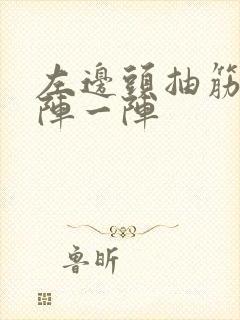 左邊頭抽筋
陣一陣
魯昕